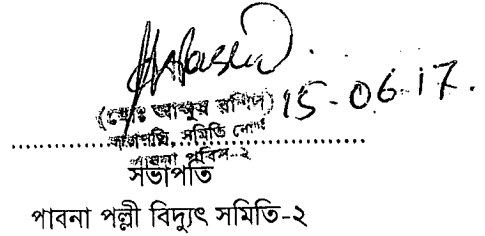 15-06-17.
(মোঃ আব্দুর রশিদ)
সভাপতি, সমিতি বোর্ড
পাবনা পবিস-২
সভাপতি
পাবনা পল্লী বিদ্যুৎ সমিতি-২